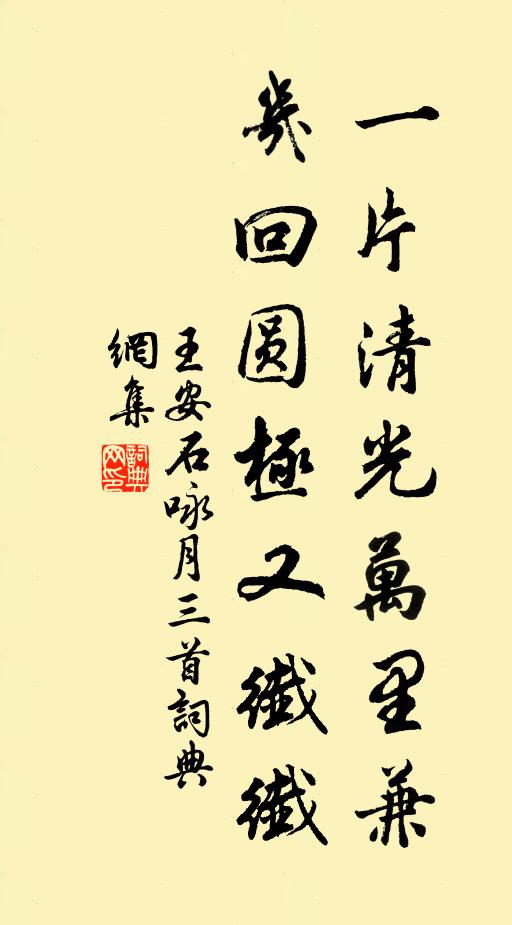 一片清光萬里兼
幾回圓極又纖纖
王安石咏月三首詞典
網集
詞典
网印